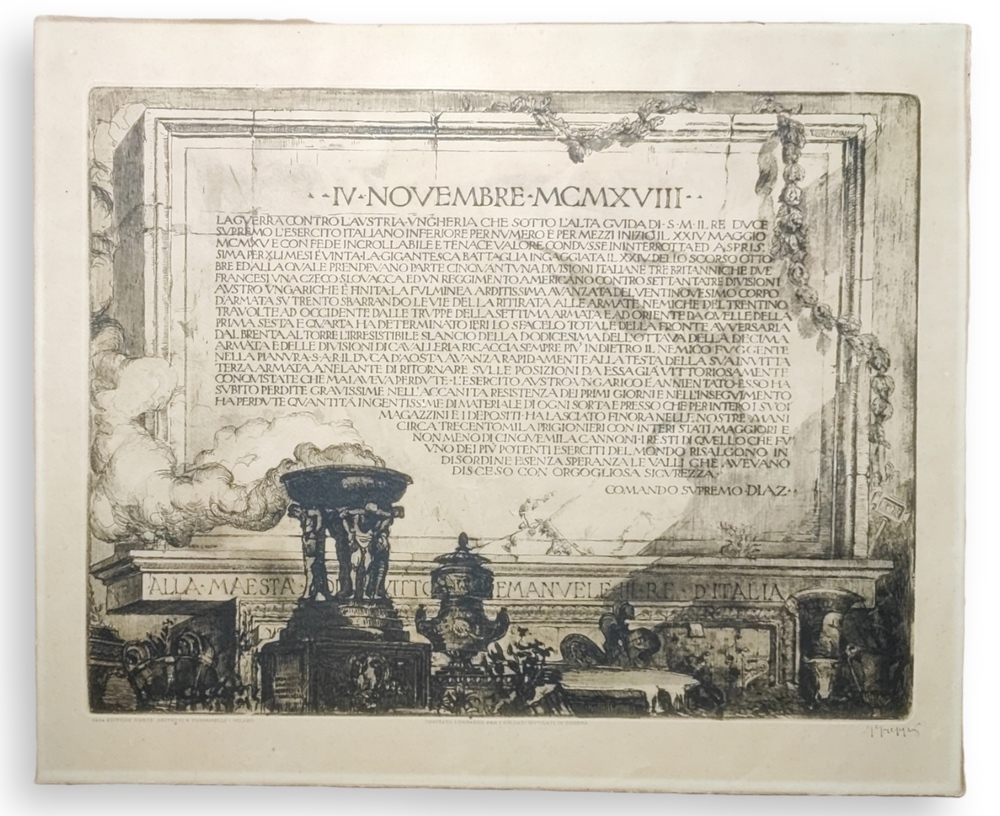 ··IV·NOVEMBRE·MCMXVIII··
LA GVERRA CONTRO L'AVSTRIA VNGHERIA CHE SOTTO L'ALTA GVIDA DI·S·M·IL RE DVCE
SVPREMO L'ESERCITO ITALIANO INFERIORE PER NVMERO E PER MEZZI INIZIÒ IL XXIV MAGGIO
MCMXV E CON FEDE INCROLLABILE E TENACE VALORE CONDVSSE ININTERROTTA ED ASPRIS¯
SIMA PER XLI MESI È VINTA·LA GIGANTESCA BATTAGLIA INGAGGIATA IL XXIV DELLO SCORSO OTTO¯
BRE ED ALLA QVALE PRENDEVANO PARTE CINQVANTVNA DIVISIONI ITALIANE TRE BRITANNICHE DVE
FRANCESI VNA CZECO SLOVACCA ED VN REGGIMENTO AMERICANO CONTRO SETTANTATRE DIVISIONI
AVSTRO VNGARICHE È FINITA·LA FVLMINEA ARDITISSIMA AVANZATA DEL VENTINOVESIMO CORPO
D'ARMATA SV TRENTO SBARRANDO LE VIE DELLA RITIRATA ALLE ARMATE NEMICHE DEL TRENTINO
TRAVOLTE AD OCCIDENTE DALLE TRVPPE DELLA SETTIMA ARMATA E AD ORIENTE DA QVELLE DELLA
PRIMA SESTA E QVARTA HA DETERMINATO IERI LO SFACELO TOTALE DELLA FRONTE AVVERSARIA
DAL BRENTA AL TORRE L'IRRESISTIBILE SLANCIO DELLA DODICESIMA DELL'OTTAVA DELLA DECIMA
ARMATA E DELLE DIVISIONI DI CAVALLERIA RICACCIA SEMPRE PIV' INDIETRO IL NEMICO FVGGENTE
NELLA PIANVRA·S·A·R·IL DVCA D'AOSTA AVANZA RAPIDAMENTE ALLA TESTA DELLA SVA INVITTA
TERZA ARMATA ANELANTE DI RITORNARE SVLLE POSIZIONI DA ESSA GIÀ VITTORIOSAMENTE
CONQVISTATE CHE MAI AVEVA PERDVTE·L'ESERCITO AVSTRO VNGARICO È ANNIENTATO·ESSO HA
SVBITO PERDITE GRAVISSIME NELL'ACCANITA RESISTENZA DEI PRIMI GIORNI E NELL'INSEGVIMENTO
HA PERDVTE QVANTITÀ INGENTISSIME DI MATERIALE DI OGNI SORTA E PRESSO CHE PER INTERO I SVOI
MAGAZZINI E I DEPOSITI HA LASCIATO FINORA NELLE NOSTRE MANI
CIRCA TRECENTOMILA PRIGIONIERI CON INTERI STATI MAGGIORI E
NON MENO DI CINQVEMILA CANNONI·I RESTI DI QVELLO CHE FV'
VNO DEI PIV POTENTI ESERCITI DEL MONDO RISALGONO IN
DISORDINE E SENZA SPERANZA LE VALLI CHE AVEVANO
DISCESO CON ORGOGLIOSA SICVREZZA·
COMANDO SVPREMO·DIAZ··
ALLA·MAESTA DI VITTO EMANVELE III RE·D'ITALIA